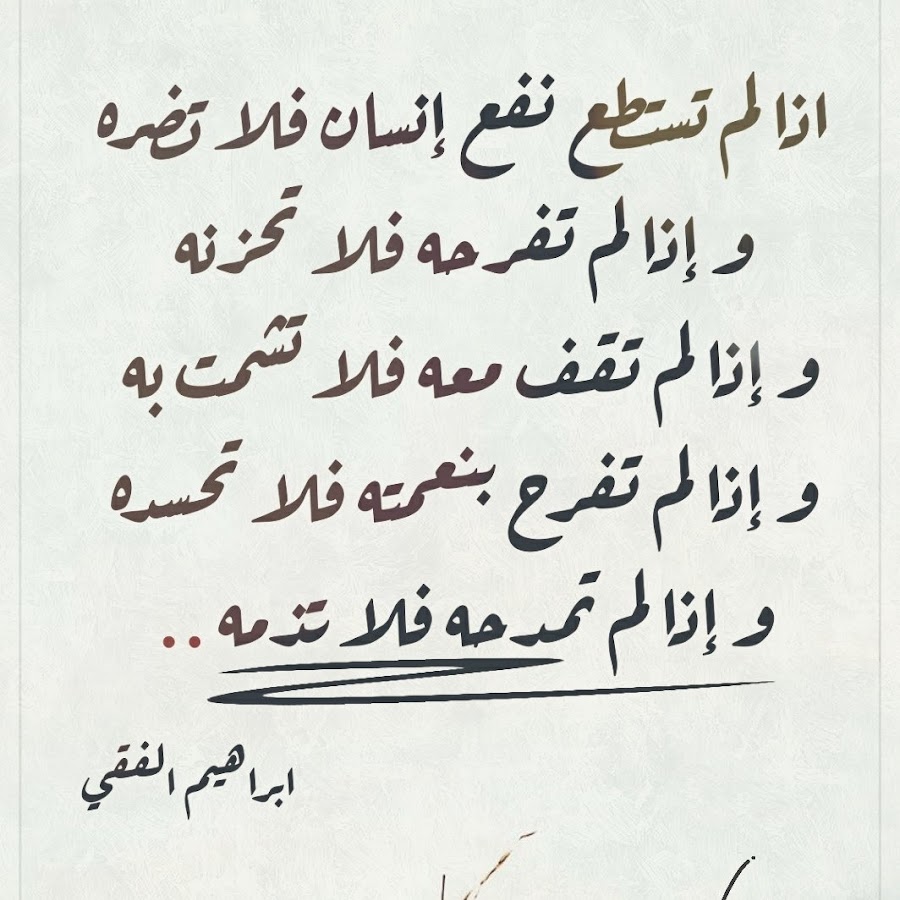 اذا لم تستطع نفع إنسان فلا تضره
و إذا لم تفرحه فلا تحزنه
و إذا لم تقف معه فلا تشمت به
و إذا لم تفرح بنعمته فلا تحسده
و إذا لم تمدحه فلا تذمه ..
ابراهيم الفقي